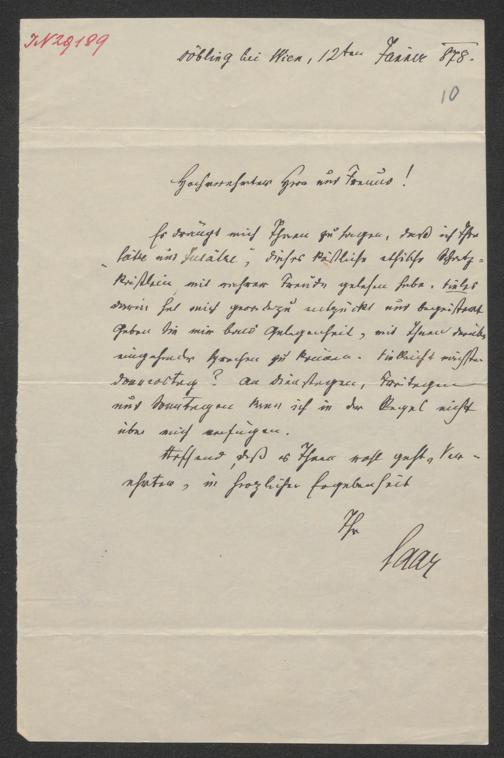 IN 29189
Döbling bei Wien, 12ten Jänner 878.
10
Hochverehrter Herr und Freund!
Es drängt mich Ihnen zu sagen, daß ich Ihre
"Sätze und", dieses köstliche ethische Schatz-
kästlein mit wahrer Freude gelesen habe. Vieles
darin hat mich geradezu entzückt und begeistert.
Geben Sie mir bald Gelegenheit, mit Ihnen darüber
eingehender sprechen zu können. Vielleicht nächsten
Donnerstag? An Dienstagen, Freitagen
und Sonntagen kann ich in der Regel nicht
über mich verfügen.
Hoffend, daß es Ihnen wohl geht, Ver-
ehrter, in herzlicher Ergebenheit
Ihr
Saar